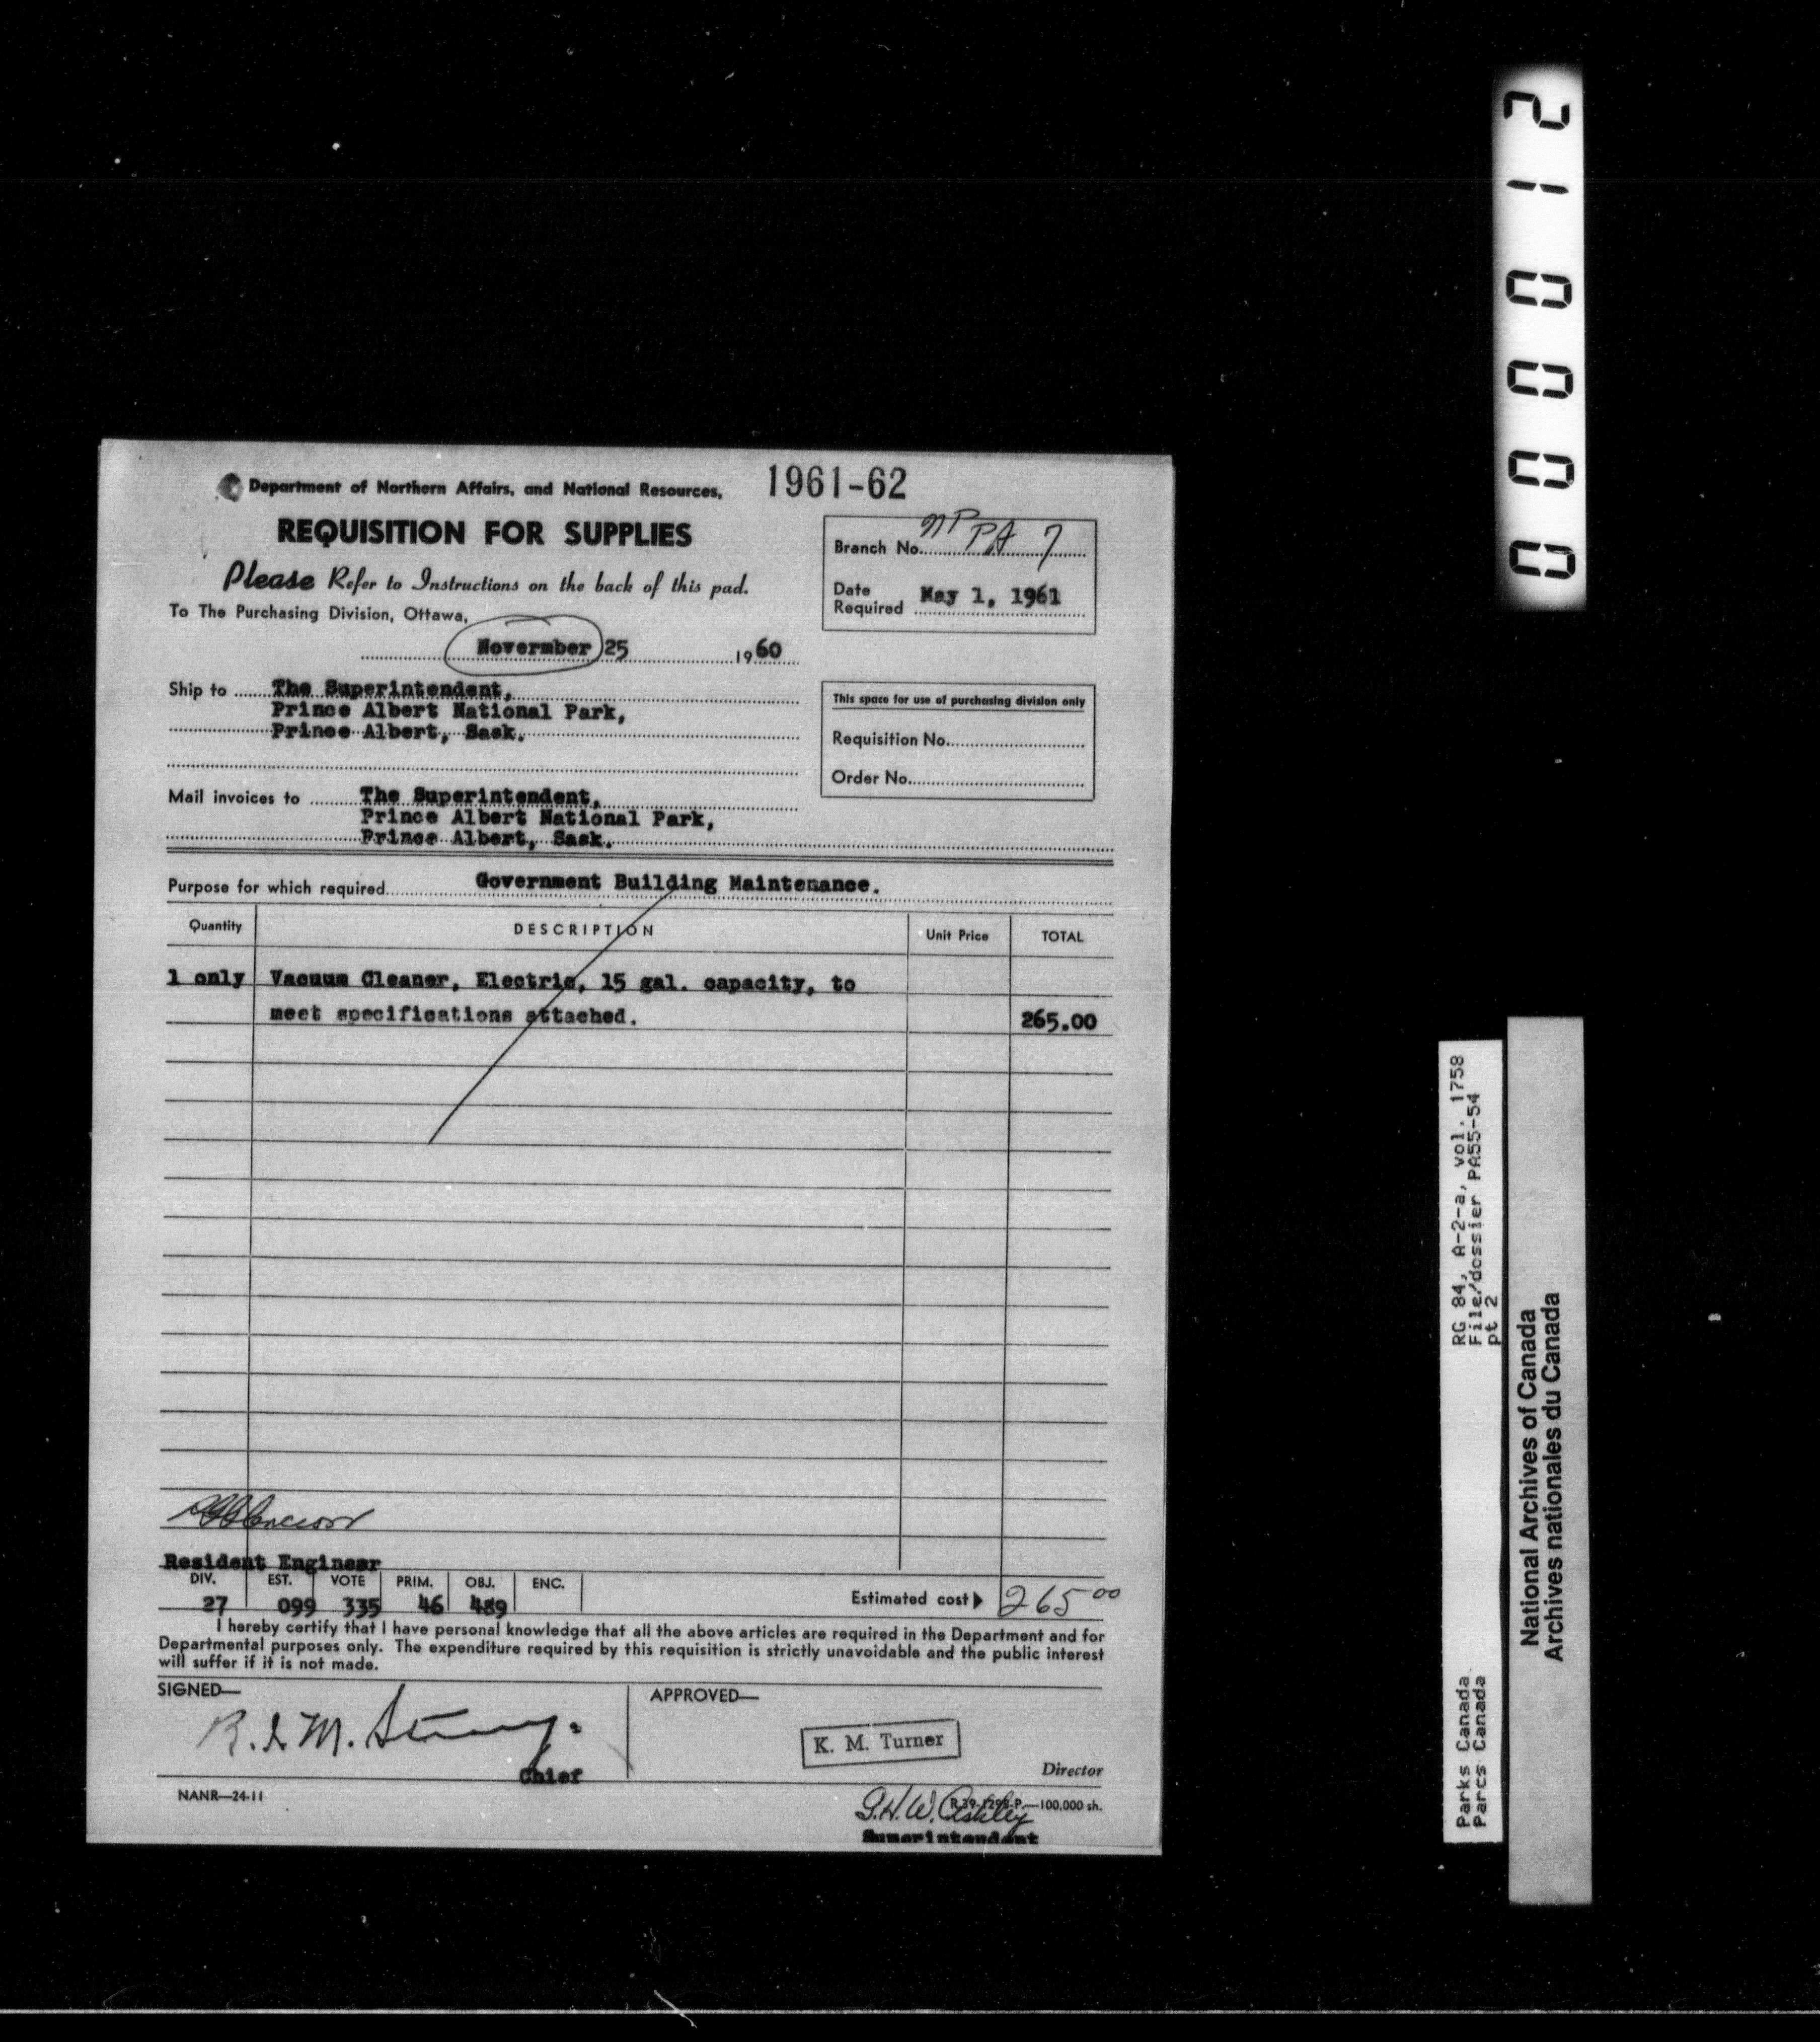 Department of Northern Affairs, and National Resources, 1961-62
REQUISITION FOR SUPPLIES
Please Refer to Instructions on the back of this pad.
Branch No. NP PA 7
Date Required May 1, 1961
To The Purchasing Division, Ottawa,
Novermber 25 1960
Ship to The Superintendent,
Prince Albert National Park,
Prince Albert, Sask.
This space for use of purchasing division only
Requisition No.
Order No.
Mail invoices to The Superintendent,
Prince Albert National Park,
Prince Albert, Sask.
Purpose for which required Government Building Maintenance.
Quantity DESCRIPTION Unit Price TOTAL
1 only Vacuum Cleaner, Electric, 15 gal. capacity, to
meet specifications attached. 265.00
Resident Engineer
DIV. EST. VOTE PRIM. OBJ. ENC.
27 099 335 46 489
Estimated cost 265 00
I hereby certify that I have personal knowledge that all the above articles are required in the Department and for
Departmental purposes only. The expenditure required by this requisition is strictly unavoidable and the public interest
will suffer if it is not made.
SIGNED—
Chief
APPROVED—
K. M. Turner
Director
NANR—24-11
R.39-1295-P.—100,000 sh.
G.H.W. Ashley
Superintendent
000012
RG 84, A-2-a, vol. 1758
File/dossier PA55-54
pt 2
Parks Canada
Parcs Canada
National Archives of Canada
Archives nationales du Canada